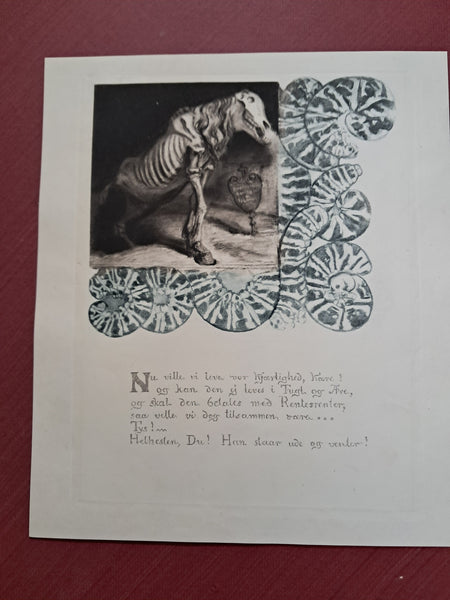 Nu ville vi leve vor Kjærlighed, Kære!
og kan den ej leves i Tugt og Ære,
og skal den betales med Rentesrenter,
saa ville vi dog tilsammen være...
Tys!
Helhesten, Du! Han staar ude og venter!